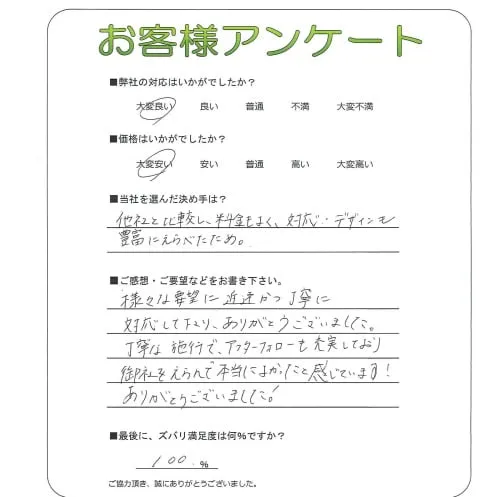 お客様アンケート
■弊社の対応はいかがでしたか？
大変良い 良い 普通 不満 大変不満
■価格はいかがでしたか？
大変安い 安い 普通 高い 大変高い
■当社を選んだ決め手は？
他社と比較し、料金もよく、対応・デザインも
豊富にえらべたため。
■ご感想・ご要望などをお書き下さい。
様々な要望に迅速かつ丁寧に
対応して下さり、ありがとうございました。
丁寧な施行で、アフターフォローも充実しており
御社をえらんで本当によかったと感じています！
ありがとうございました！
■最後に、ズバリ満足度は何％ですか？
100 ％
ご協力頂き、誠にありがとうございました。